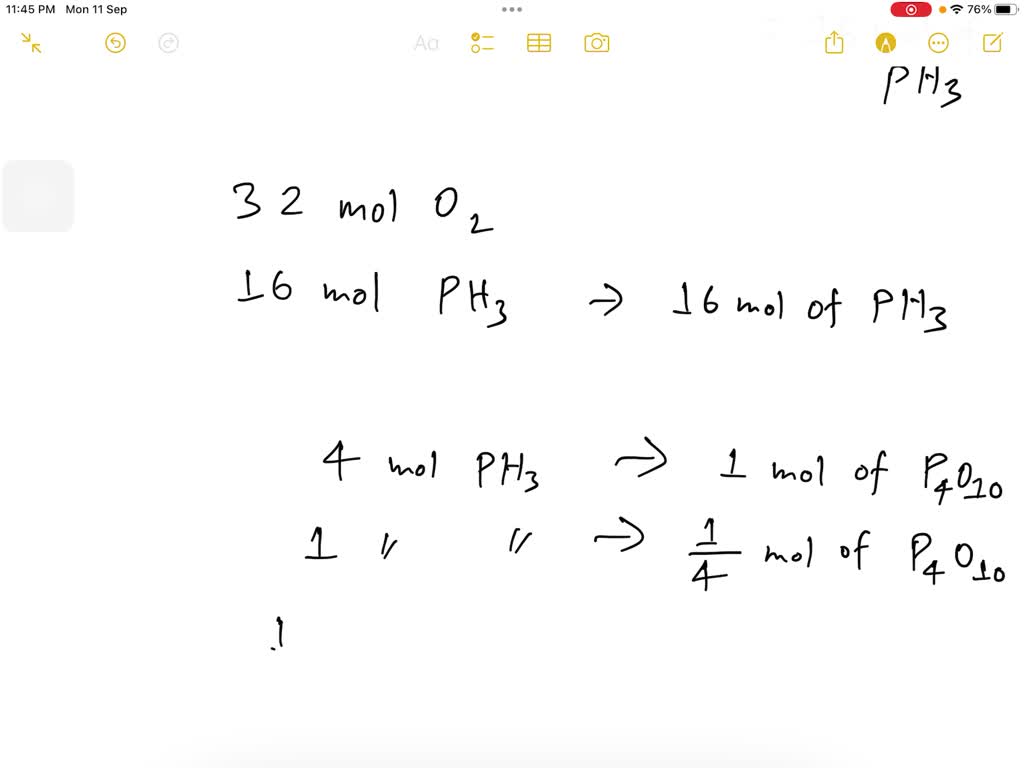 11:45 PM Mon 11 Sep 76%
Aa
PH3
32 mol O2
16 mol PH3 → 16 mol of PH3
4 mol PH3 → 1 mol of P4O10
1 〃 〃 → 1/4 mol of P4O10
1